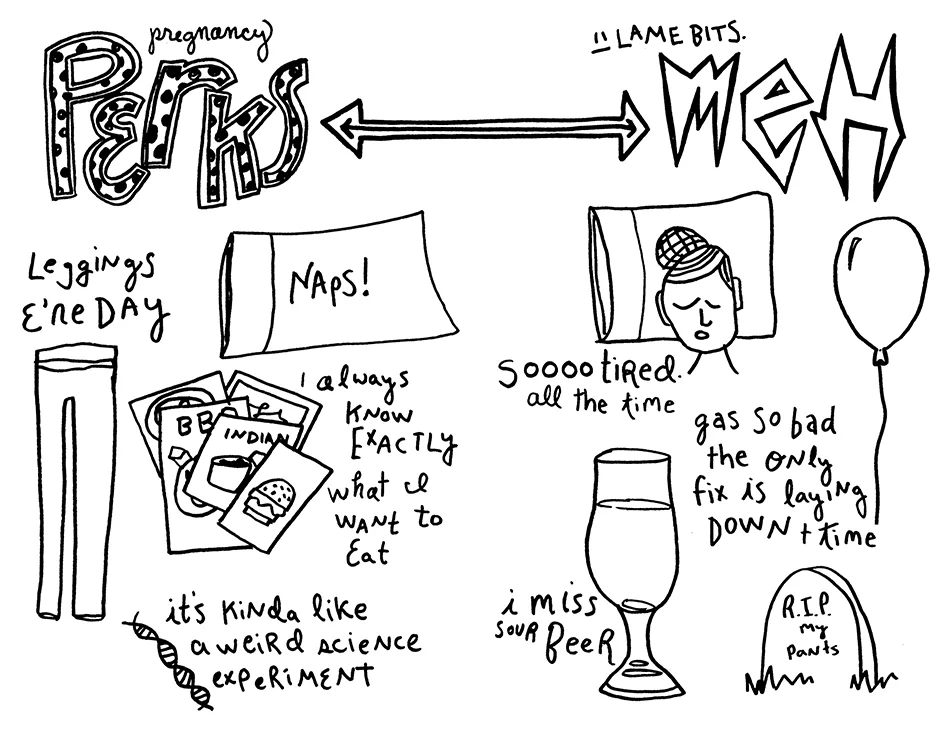 pregnancy
PERKS
LAME BITS.
MEH
Leggings
E'RE DAY
NAPS!
I always
KNOW
EXACTLY
what I
WANT to
Eat
BB
INDIAN
it's KINDA like
a weird science
experiment
soooo tired.
all the time
gas so bad
the only
fix is laying
DOWN + time
i miss
sour
Beer
R.I.P.
my
pants